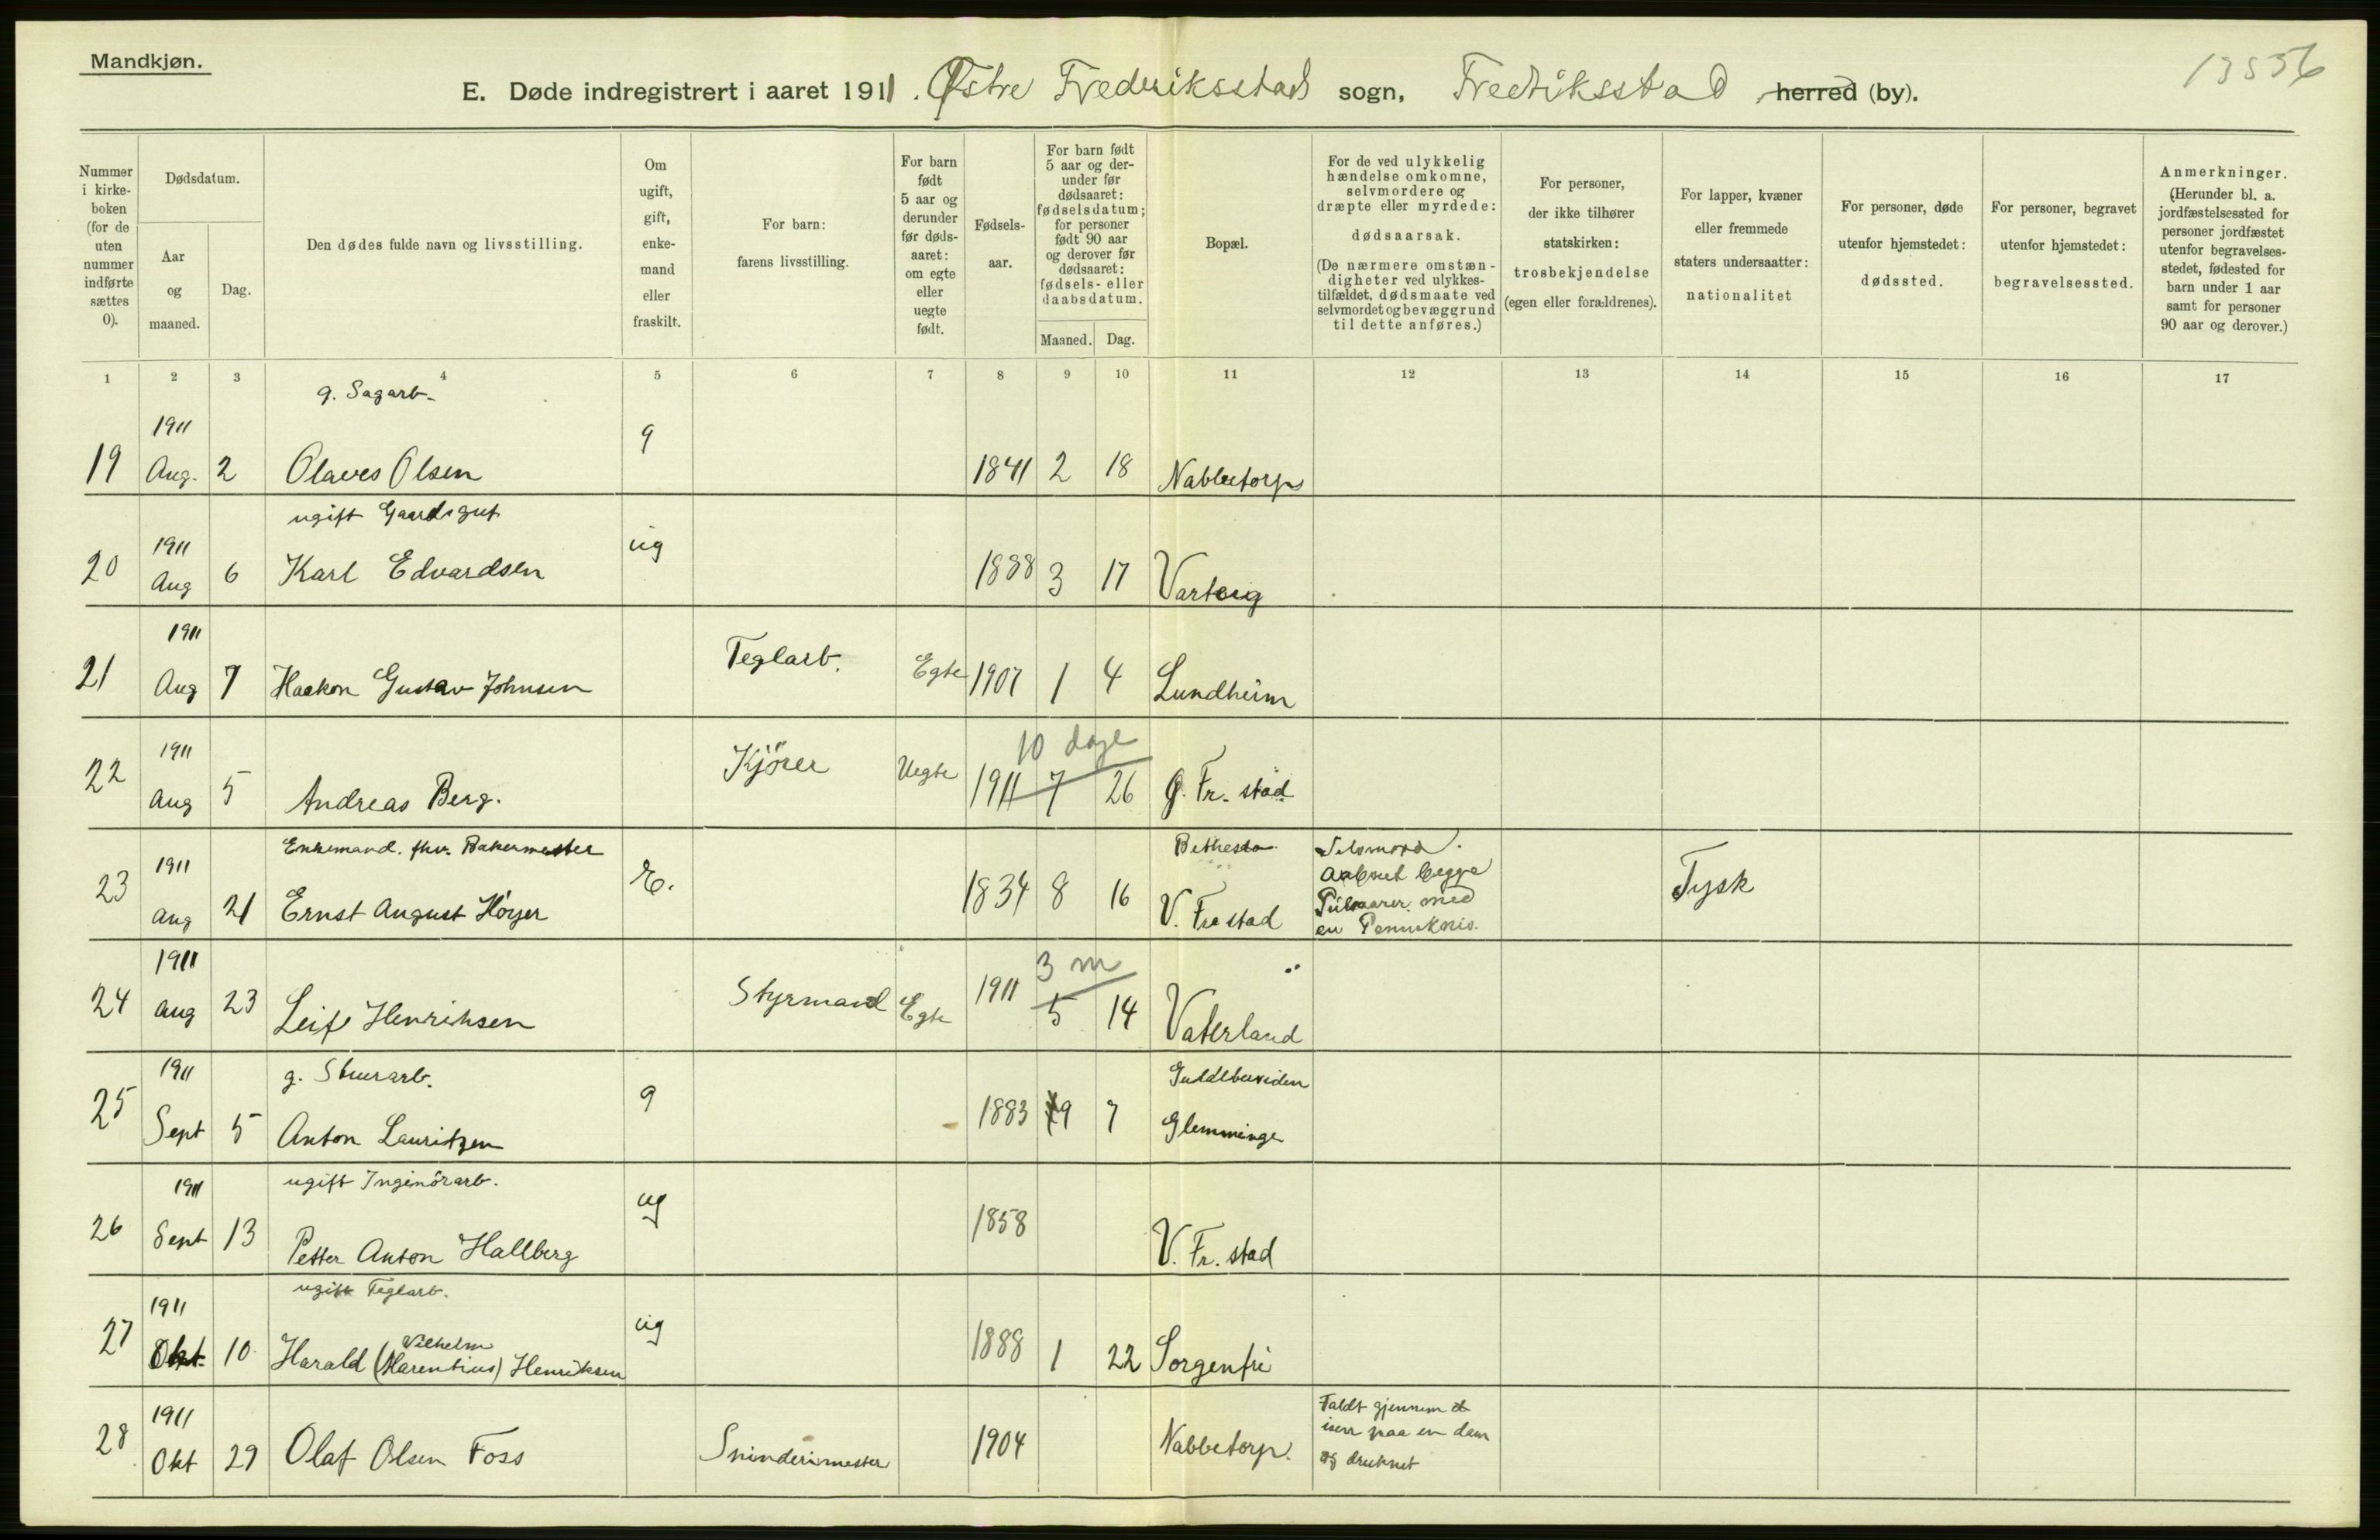 Mandkjøn.
13556
E. Døde indregistrert i aaret 1911. Østre Frederiksstad sogn, Fredriksstad herred (by).
Nummer i kirkeboken (for de uten nummer indførte sættes 0).
Dødsdatum.
Aar og maaned.
Dag.
Den dødes fulde navn og livsstilling.
Om ugift, gift, enkemand eller fraskilt.
For barn: farens livsstilling.
For barn født 5 aar og derunder før dødsaaret: om egte eller uegte født.
Fødselsaar.
For barn født 5 aar og derunder før dødsaaret: fødselsdatum; for personer født 90 aar og derover før dødsaaret: fødsels- eller daabsdatum.
Maaned. Dag.
Bopæl.
For de ved ulykkelig hændelse omkomne, selvmordere og dræpte eller myrdede: dødsaarsak.
(De nærmere omstændigheter ved ulykkestilfældet, dødsmaate ved selvmordet og bevæggrund til dette anføres.)
For personer, der ikke tilhører statskirken: trosbekjendelse (egen eller forældrenes).
For lapper, kvæner eller fremmede staters undersaatter: nationalitet
For personer, døde utenfor hjemstedet: dødssted.
For personer, begravet utenfor hjemstedet: begravelsessted.
Anmerkninger.
(Herunder bl. a. jordfæstelsessted for personer jordfæstet utenfor begravelsesstedet, fødested for barn under 1 aar samt for personer 90 aar og derover.)
1 2 3 4 5 6 7 8 9 10 11 12 13 14 15 16 17
g. Sagarb.
19 1911 Aug. 2 Olaves Olsen g 1841 2 18 Nabbetorp
ugift Gaardsgut
20 1911 Aug 6 Karl Edvardsen ug 1888 3 17 Varteig
21 1911 Aug 7 Haakon Gustav Johnsen Teglarb. Egte 1907 1 4 Lundheim
10 dage
22 1911 Aug 5 Andreas Berg. Kjörer Uegte 1911 7 26 Ø. Fr. stad
Enkemand. fhv. Bakermester Bethesda
23 1911 Aug 21 Ernst August Höyer E. 1834 8 16 V. Fre stad Selvmord. begge med en Tysk
3 m
24 1911 Aug 23 Leif Henriksen Styrmand Egte 1911 5 14 Vaterland
g. Stuerarb.
25 1911 Sept 5 Anton Lauritzen g 1883 9 7 Glemminge
ugift Ingeniörarb.
26 1911 Sept 13 Petter Anton Hallberg ug 1858 V. Fr. stad
ugift Teglarb.
Vilhelm
27 1911 Okt 10 Harald (Harentius) Henriksen ug 1888 1 22 Sorgenfri
28 1911 Okt 29 Olaf Olsen Foss Spinderimester 1904 Nabbetorp. Faldt gjennem isen paa en dam og druknet